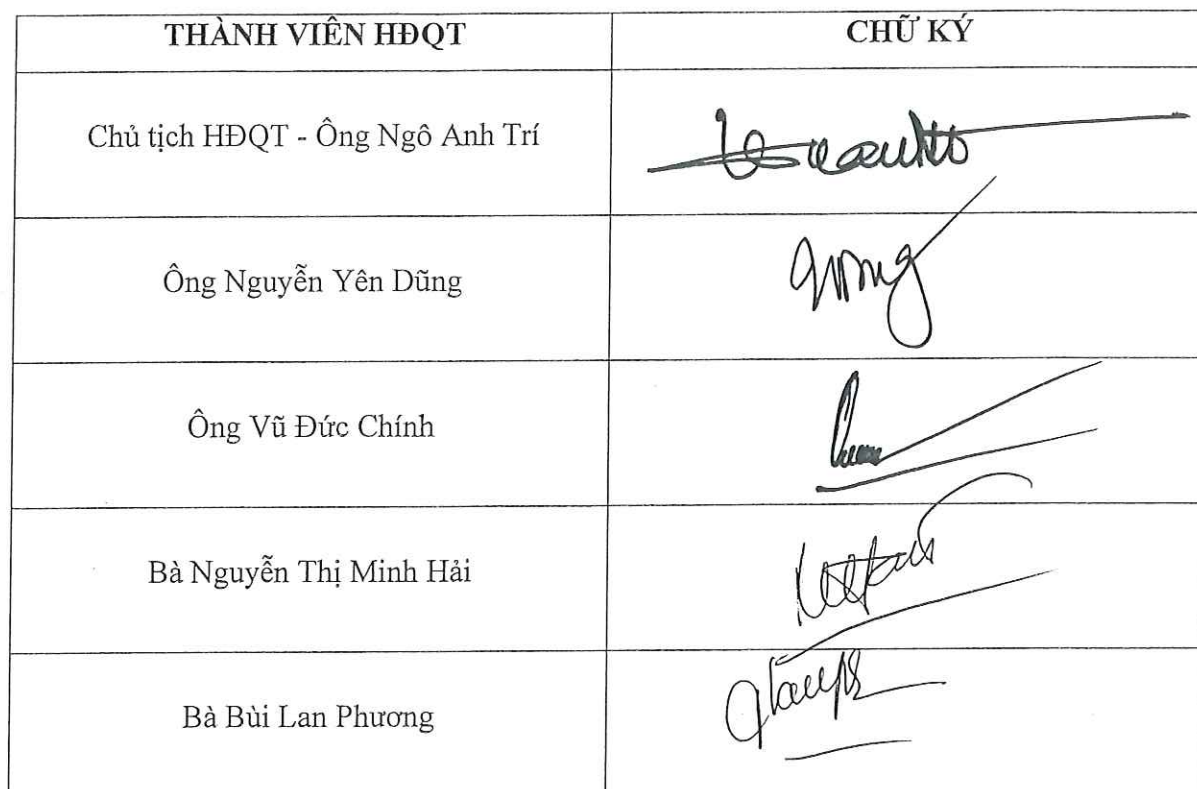 THÀNH VIÊN HĐQT
CHỮ KÝ
Chủ tịch HĐQT - Ông Ngô Anh Trí
Ông Nguyễn Yên Dũng
Ông Vũ Đức Chính
Bà Nguyễn Thị Minh Hải
Bà Bùi Lan Phương